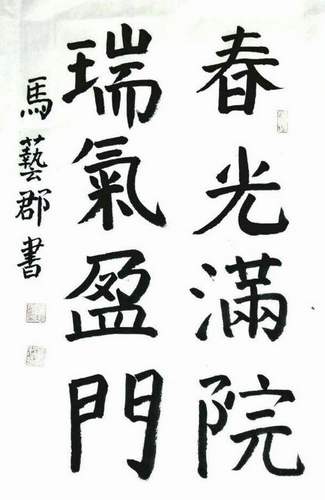 春光滿院
瑞氣盈門
馬藝郡書